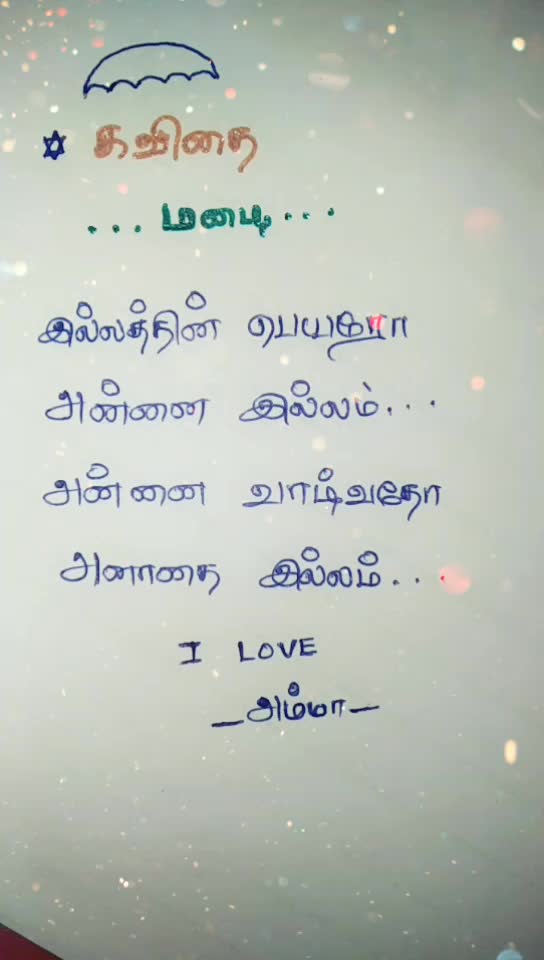 கவிதை
... மழை ...
இல்லத்தின் பெயரோ
அன்னை இல்லம்...
அன்னை வாழ்வதோ
அனாதை இல்லம்..
I LOVE
_அம்மா_